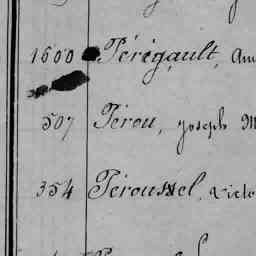 1600 Pérégault, Am
507 Pérou, Joseph M
354 Péroussel, Victo